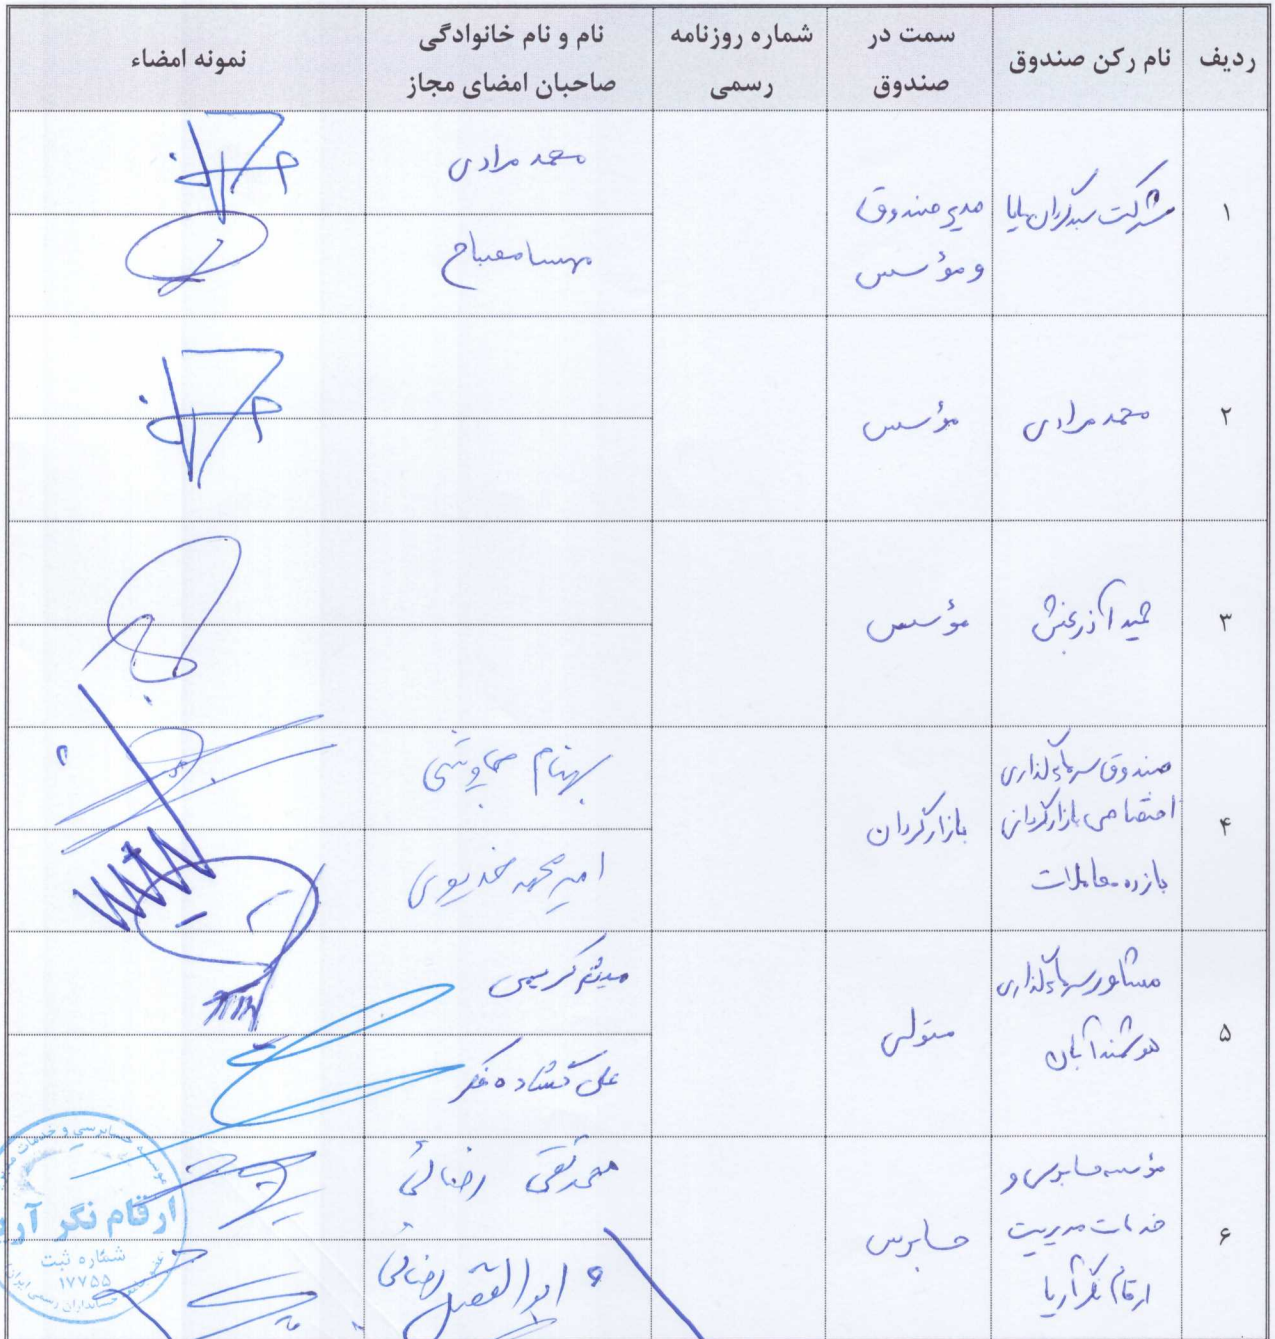 ردیف
نام رکن صندوق
سمت در
صندوق
شماره روزنامه
رسمی
نام و نام خانوادگی
صاحبان امضای مجاز
نمونه امضاء
۱
شرکت سبدگردان پایا
مدیر صندوق
و مؤسس
محمد مرادی
مهسا مصباح
۲
محمد مرادی
مؤسس
۳
حمید آذرخش
مؤسس
۴
صندوق سرمایه‌گذاری
اختصاصی بازارگردانی
معاملات
بازارگردان
بهنام چاوشی
امیرمحمد خدیوی
۵
مشاور سرمایه‌گذاری
هوشمند آبان
متولی
میثم کریمی
علی گشاده فکر
۶
مؤسسه حسابرسی و
خدمات مدیریت
ارقام نگر آریا
حسابرس
محمدتقی رضائی
ابوالفضل رضائی
ارقام نگر آریا
شماره ثبت
۱۷۷۵۵